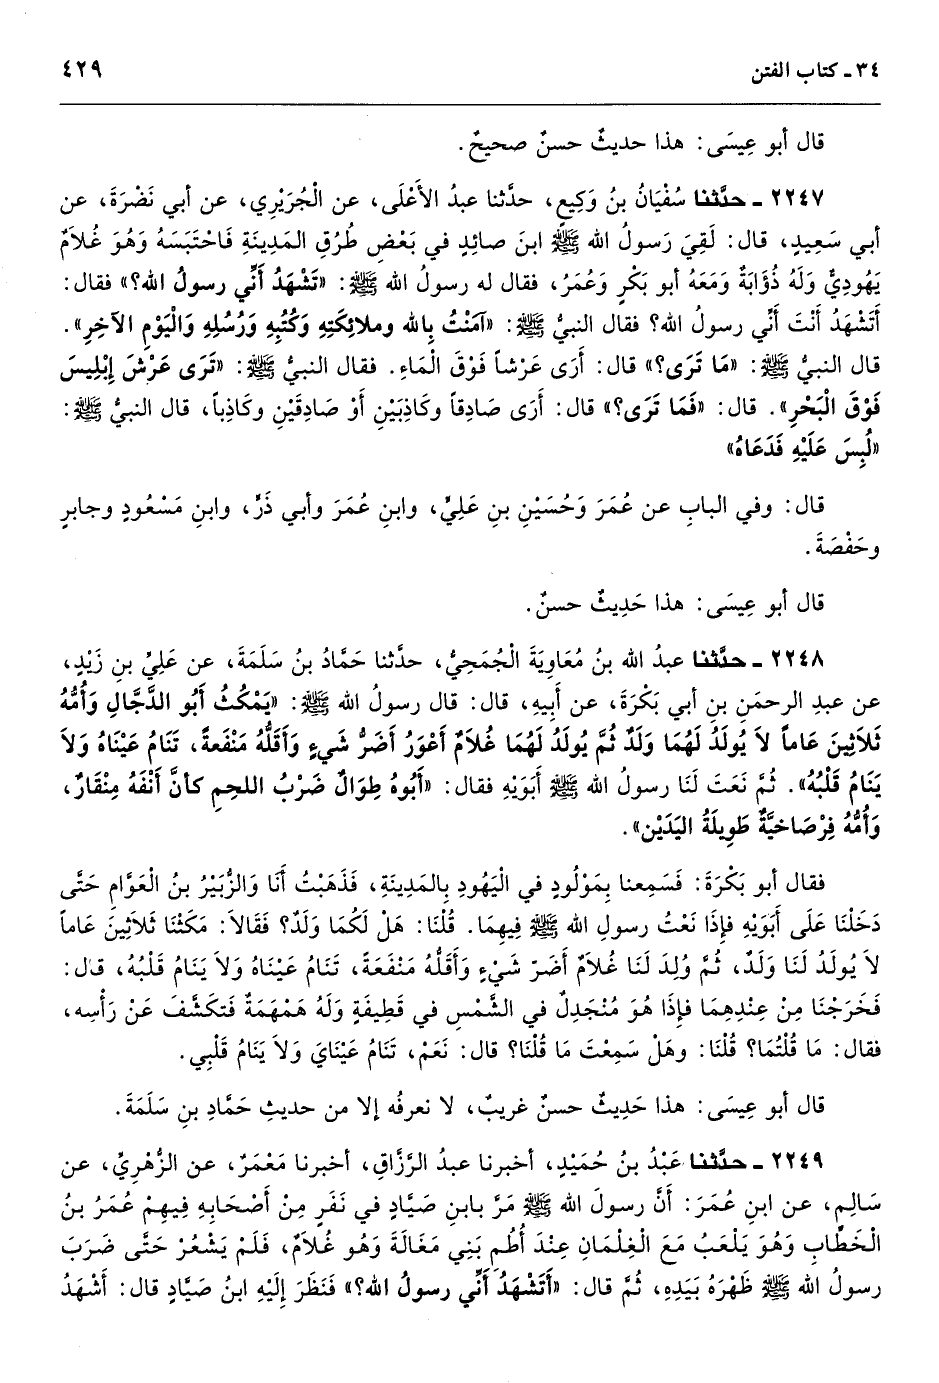 ٣٤ ـ كتاب الفتن ٤٢٩
قال أبو عِيسَى: هذا حديثٌ حسنٌ صحيحٌ.
٢٢٤٧ ـ حدَّثنا سُفْيَانُ بنُ وَكِيعٍ، حدَّثنا عبدُ الأَعْلَى، عن الْجُرَيْرِي، عن أبي نَضْرَةَ، عن
أبي سَعِيدٍ، قال: لَقِيَ رَسولُ الله ﷺ ابنَ صائِدٍ في بَعْضِ طُرُقِ المَدِينَةِ فَاحْتَبَسَهُ وَهُوَ غُلاَمٌ
يَهُودِيٌّ وَلَهُ ذُؤَابَةٌ وَمَعَهُ أبو بَكْرٍ وَعُمَرُ، فقال له رسولُ الله ﷺ: «تَشْهَدُ أَنِّي رسولُ الله؟» فقال:
أَتَشْهَدُ أَنْتَ أَنِّي رسولُ الله؟ فقال النبيُّ ﷺ: «آمَنْتُ بِالله وملائِكَتِهِ وَكُتُبِهِ وَرُسُلِهِ وَالْيَوْمِ الآخِرِ».
قال النبيُّ ﷺ: «مَا تَرَى؟» قال: أَرَى عَرْشاً فَوْقَ الْمَاءِ. فقال النبيُّ ﷺ: «تَرَى عَرْشَ إِبْلِيسَ
فَوْقَ الْبَحْرِ». قال: «فَمَا تَرَى؟» قال: أَرَى صَادِقاً وكَاذِبَيْنِ أَوْ صَادِقَيْنِ وكَاذِباً، قال النبيُّ ﷺ:
«لُبِسَ عَلَيْهِ فَدَعَاهُ»
قال: وفي البابِ عن عُمَرَ وَحُسَيْنِ بنِ عَلِيٍّ، وابنِ عُمَرَ وأبي ذَرٍّ، وابنِ مَسْعُودٍ وجابرٍ
وحَفْصَةَ.
قال أبو عِيسَى: هذا حَدِيثٌ حسنٌ.
٢٢٤٨ ـ حدَّثنا عبدُ الله بنُ مُعَاوِيَةَ الْجُمَحِيُّ، حدَّثنا حَمَّادُ بنُ سَلَمَةَ، عن عَلِيِّ بنِ زَيْدٍ،
عن عبدِ الرحمَنِ بنِ أبي بَكْرَةَ، عن أَبِيهِ، قال: قال رسولُ الله ﷺ: «يَمْكُثُ أَبُو الدَّجَّالِ وَأُمُّهُ
ثَلاَثِينَ عَاماً لاَ يُولَدُ لَهُمَا وَلَدٌ ثُمَّ يُولَدُ لَهُمَا غُلاَمٌ أَعْوَرُ أَضَرُّ شَيءٍ وَأَقَلُّهُ مَنْفَعةً، تَنَامُ عَيْنَاهُ وَلاَ
يَنَامُ قَلْبُهُ». ثُمَّ نَعَتَ لَنَا رسولُ الله ﷺ أَبَوَيْهِ فقال: «أَبُوهُ طِوَالٌ ضَرْبُ اللحمِ كأنَّ أَنْفَهُ مِنْقَارٌ،
وَأُمُّهُ فِرْضَاخِيَّةٌ طَوِيلَةُ اليَدَيْنِ».
فقال أبو بَكْرَةَ: فَسَمِعنا بِمَوْلُودٍ في الْيَهُودِ بِالمَدِينَةِ، فَذَهَبْتُ أَنَا وَالزُّبَيْرُ بنُ العَوَّامِ حَتَّى
دَخَلْنَا عَلَى أَبَوَيْهِ فإِذَا نَعْتُ رسولِ الله ﷺ فِيهِمَا. قُلْنَا: هَلْ لَكُمَا وَلَدٌ؟ فَقَالاَ: مَكَثْنَا ثَلاَثِينَ عَاماً
لاَ يُولَدُ لَنَا وَلَدٌ، ثُمَّ وُلِدَ لَنَا غُلاَمٌ أَضَرّ شَيْءٍ وَأَقَلُّهُ مَنْفَعَةً، تَنَامُ عَيْنَاهُ وَلاَ يَنَامُ قَلْبُهُ، قال:
فَخَرَجْنَا مِنْ عِنْدِهِمَا فإِذَا هُوَ مُنْجَدِلٌ في الشَّمْسِ في قَطِيفَةٍ وَلَهُ هَمْهَمَةٌ فَتَكَشَّفَ عَنْ رَأْسِه،
فقال: مَا قُلْتُمَا؟ قُلْنَا: وهَلْ سَمِعْتَ مَا قُلْنَا؟ قال: نَعَمْ، تَنَامُ عَيْنَايَ وَلاَ يَنَامُ قَلْبِي.
قال أبو عِيسَى: هذا حَدِيثٌ حسنٌ غريبٌ، لا نعرفُه إلا من حديثِ حَمَّادِ بنِ سَلَمَةَ.
٢٢٤٩ ـ حدَّثنا عَبْدُ بنُ حُمَيْدٍ، أخبرنا عبدُ الرَّزَّاقِ، أخبرنا مَعْمَرٌ، عن الزُّهْرِيِّ، عن
سَالِمٍ، عن ابنِ عُمَرَ: أَنَّ رسولَ الله ﷺ مَرَّ بابنِ صَيَّادٍ في نَفَرٍ مِنْ أَصْحَابِهِ فِيهِمْ عُمَرُ بنُ
الْخَطَّابِ وَهُوَ يَلْعَبُ مَعَ الْغِلْمَانِ عِنْدَ أُطُمِ بَنِي مَغَالَةَ وَهُو غُلاَمٌ، فَلَمْ يَشْعُرْ حَتَّى ضَرَبَ
رسولُ الله ﷺ ظَهْرَهُ بَيَدِهِ، ثُمَّ قال: «أَتَشْهَدُ أَنِّي رسولُ الله؟» فَنَظَرَ إِلَيْهِ ابنُ صَيَّادٍ قال: أَشْهَدُ